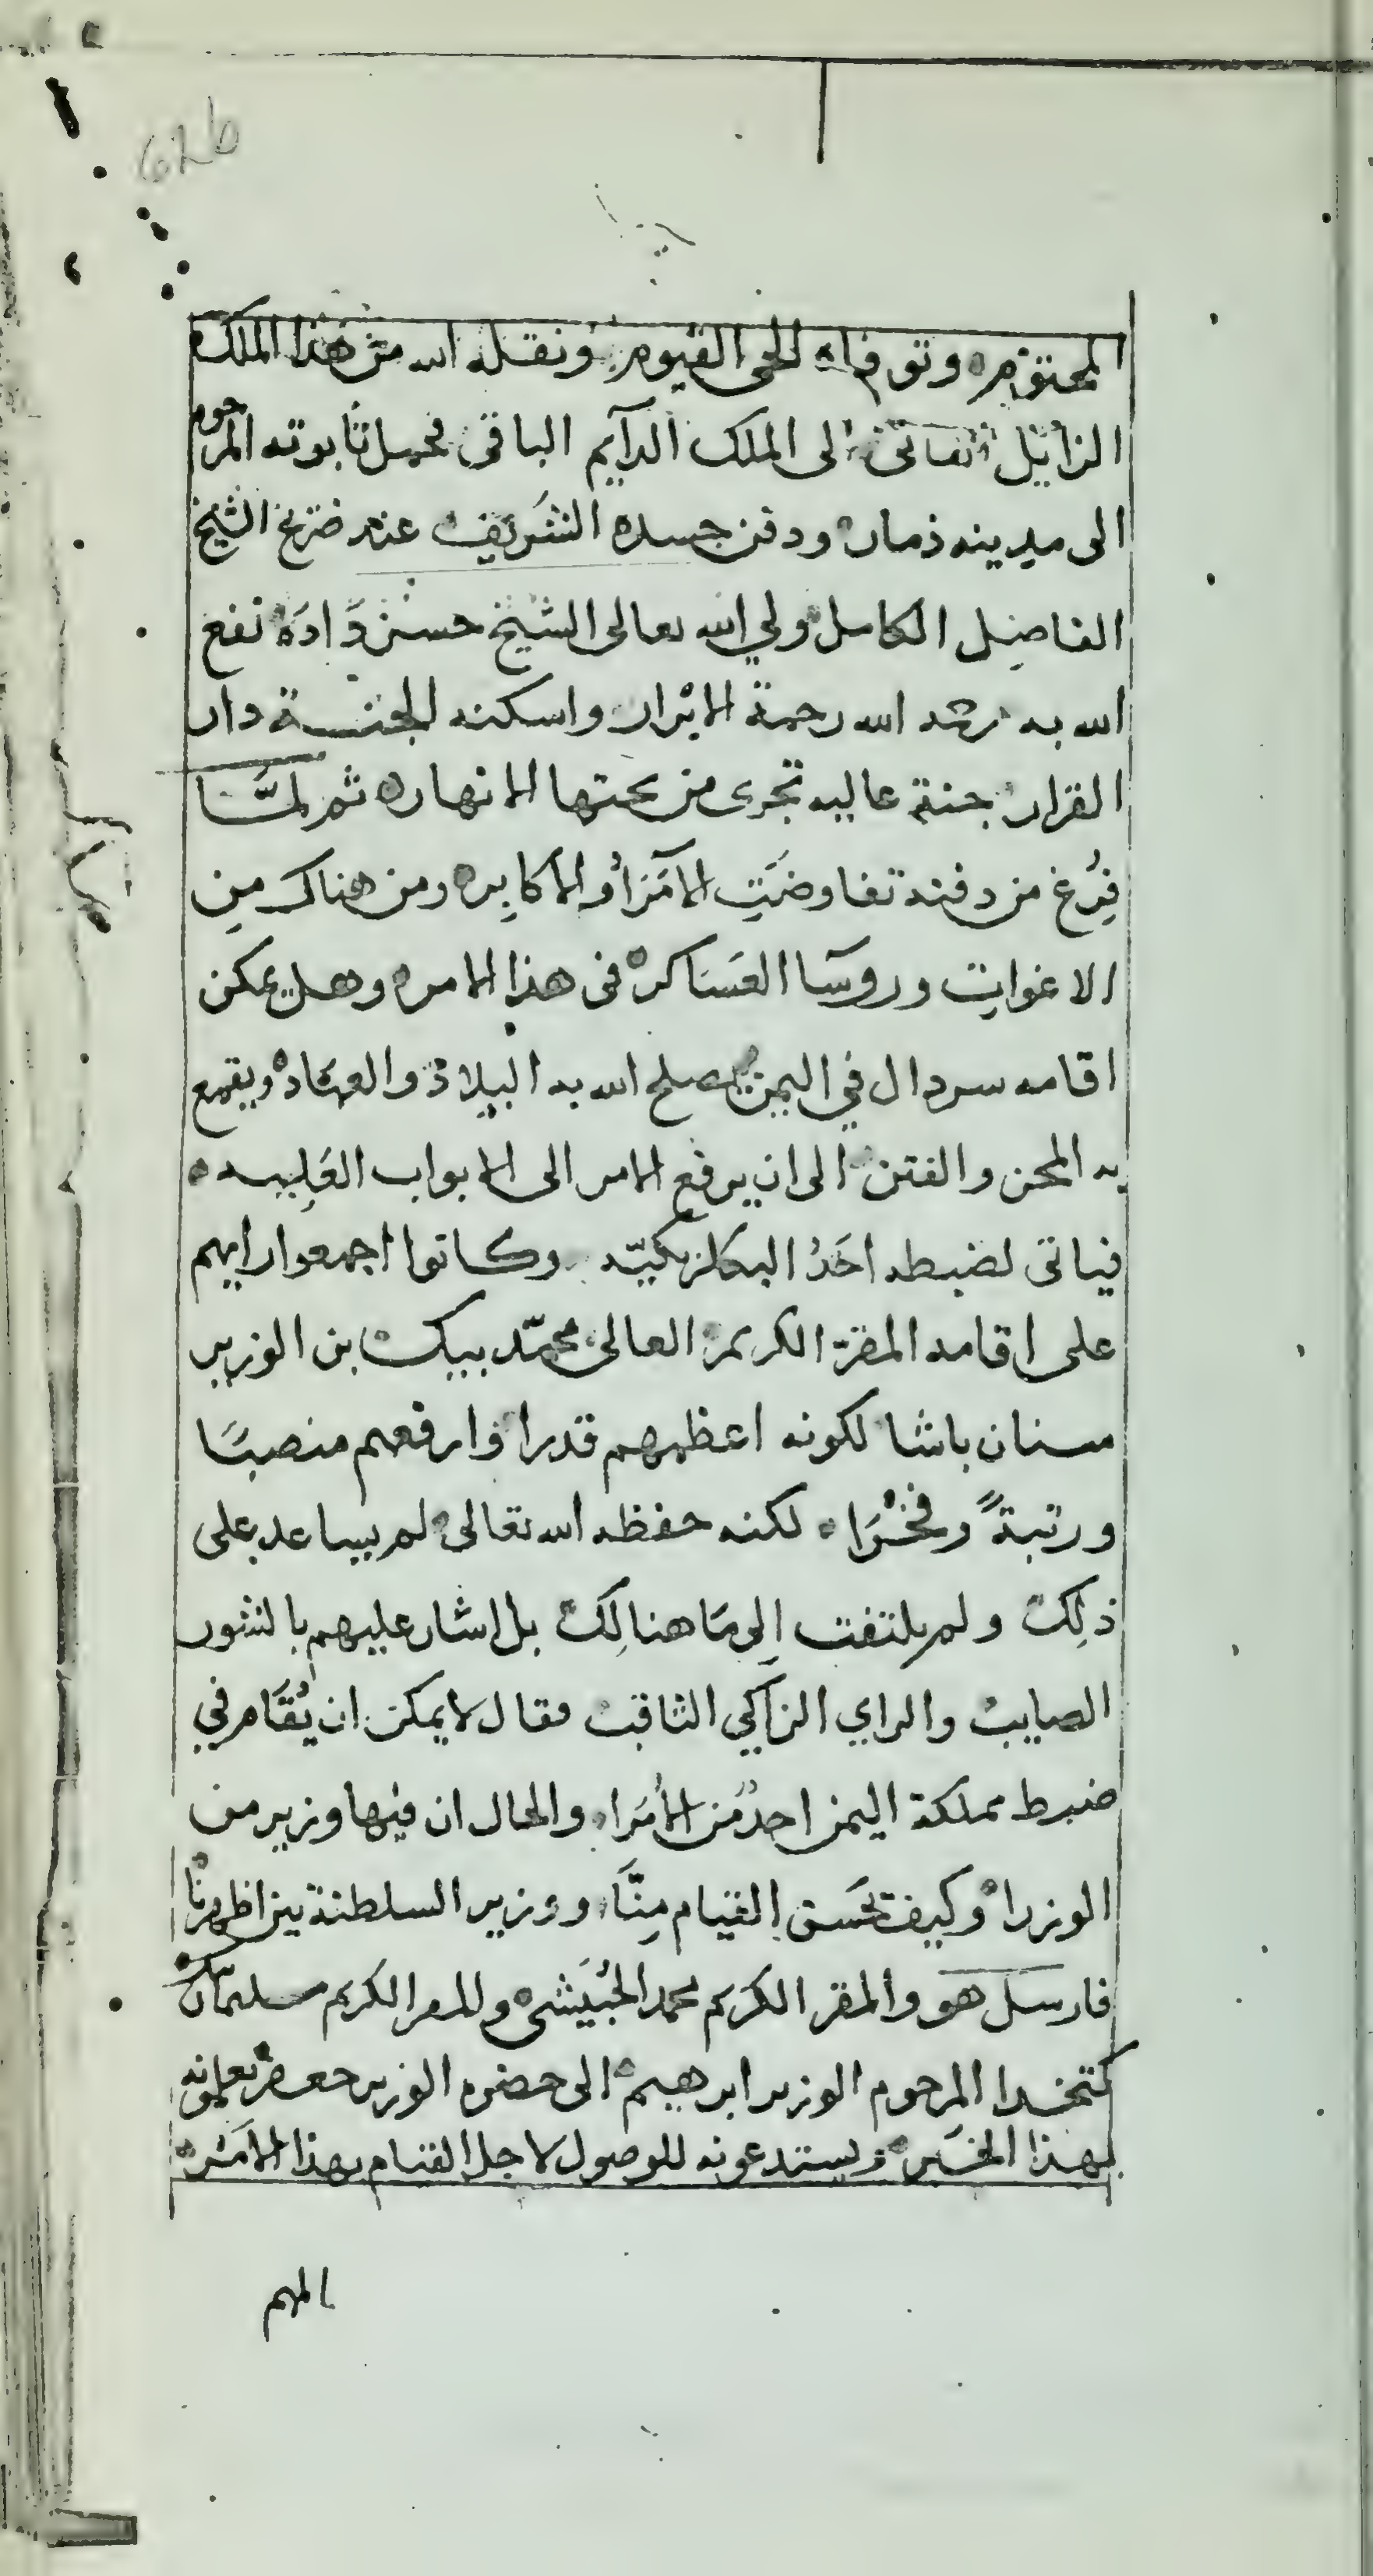 62b
المحتوم وتوفاه الحي القيوم ونقله الله من هذا الملك
الزائل الفاني الى الملك الدآيم الباقي فحمل تابوته المرحوم
الى مدينه ذمار ودفن جسده الشريف عند ضريح الشيخ
الفاضل الكامل ولي الله تعالى الشيخ حسن دَادَه نفع
الله به رحمه الله رحمة الابرار واسكنه الجنة دار
القرار جنة عاليه تجرى من تحتها الانهار ثم لمَّا
فرُغ من دفنه تفاوضَتِ الامَرَآ والاكابِر ومن هناك مِن
الاغوات وروسَا العَسَاكر فى هذا الامر وهل يمكن
اقامه سردال في اليمن يصلح الله به البلاد والعباد ويقمع
به المحن والفتن الى ان يرفع الامر الى الابواب العَلِييه
فياتى لضبطه احَدُ البكلربكيّه وكانوا اجمعوا رايهم
على اقامه المقرّ الكريم العالى محمّد بيك بن الوزير
سنان باشا لكونه اعظمهم قدرا وارفعهم منصبًا
ورتبةً وفخْرَا لكنه حفظه الله تعالى لم يساعد على
ذلِك ولم يلتفت إلى مَا هنالِك بل اشار عليهم بالشور
الصايب والراي الزاكي الثاقب فقال لا يمكن ان يُقَام في
ضبط مملكة اليمن احدُ من الأمَرا والحال ان فيها وزير من
الوزرا وكيف يحَسن القيام مِنّا ووزير السلطنة بين اظهرنا
فارسل هو والمقر الكريم محمد الجُبَيشى والمقر الكريم سليمان
كتخدا المرحوم الوزير ابرهيم الى حضره الوزير جعفر يعلمونه
بهذا الخبر ويستدعونه للوصول لاجل القيام بهذا الامَر
المهم